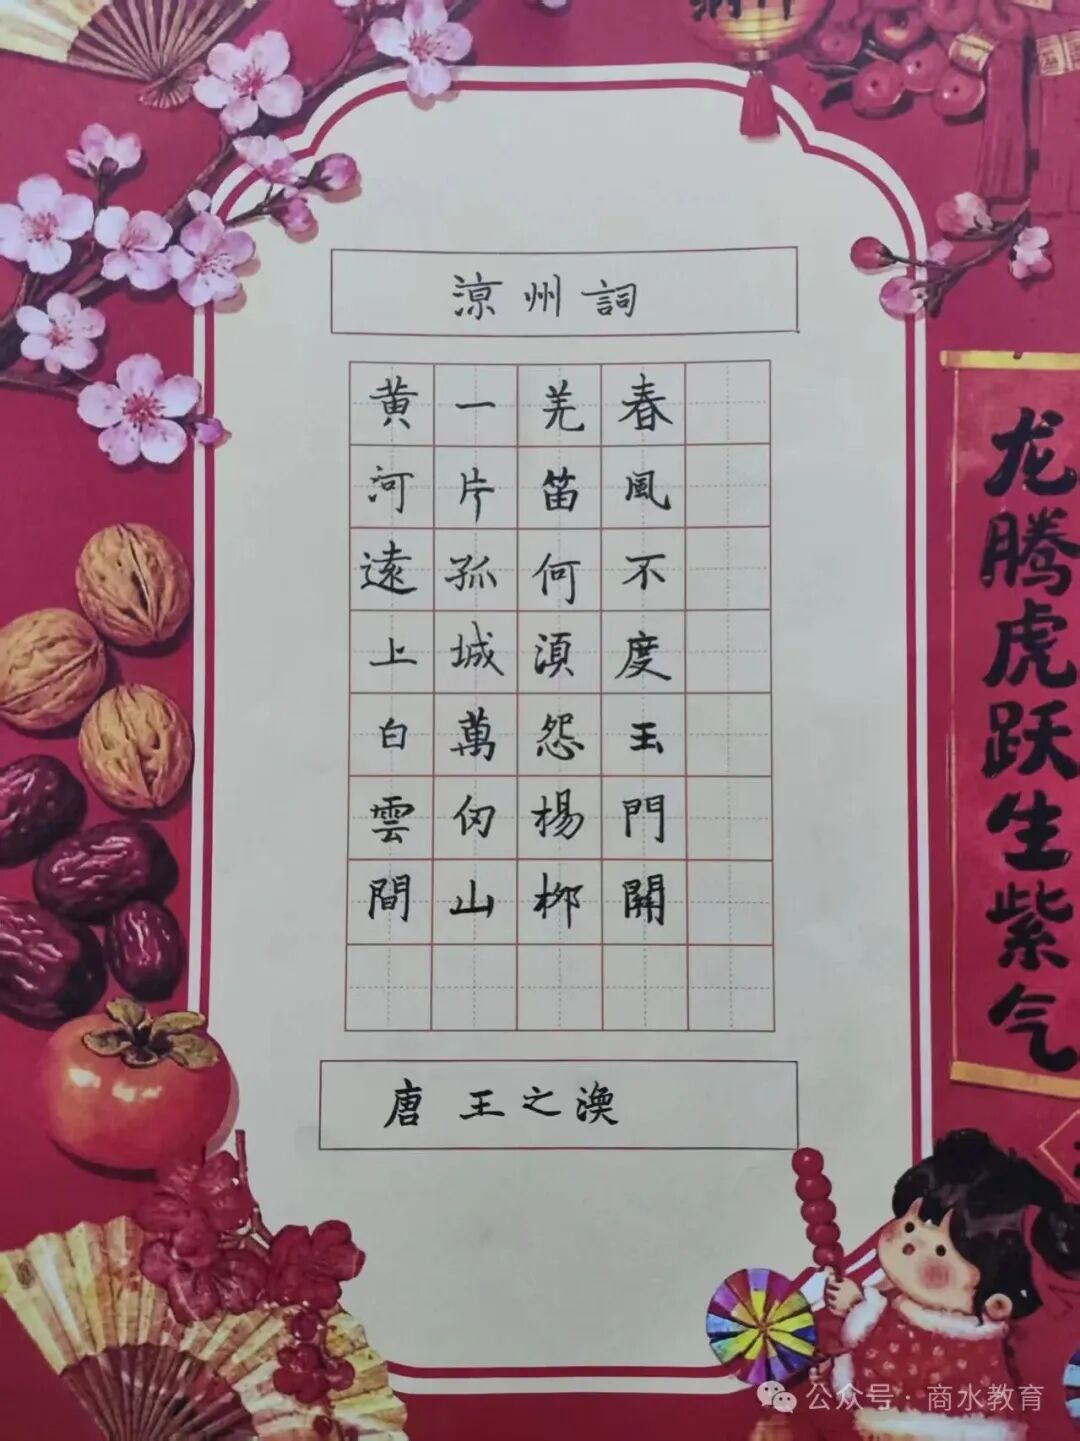 涼州詞
黄河遠上白雲間
一片孤城萬仞山
羌笛何湏怨楊柳
春風不度玉門開
唐 王之渙
龙腾虎跃生紫气
公众号·商水教育